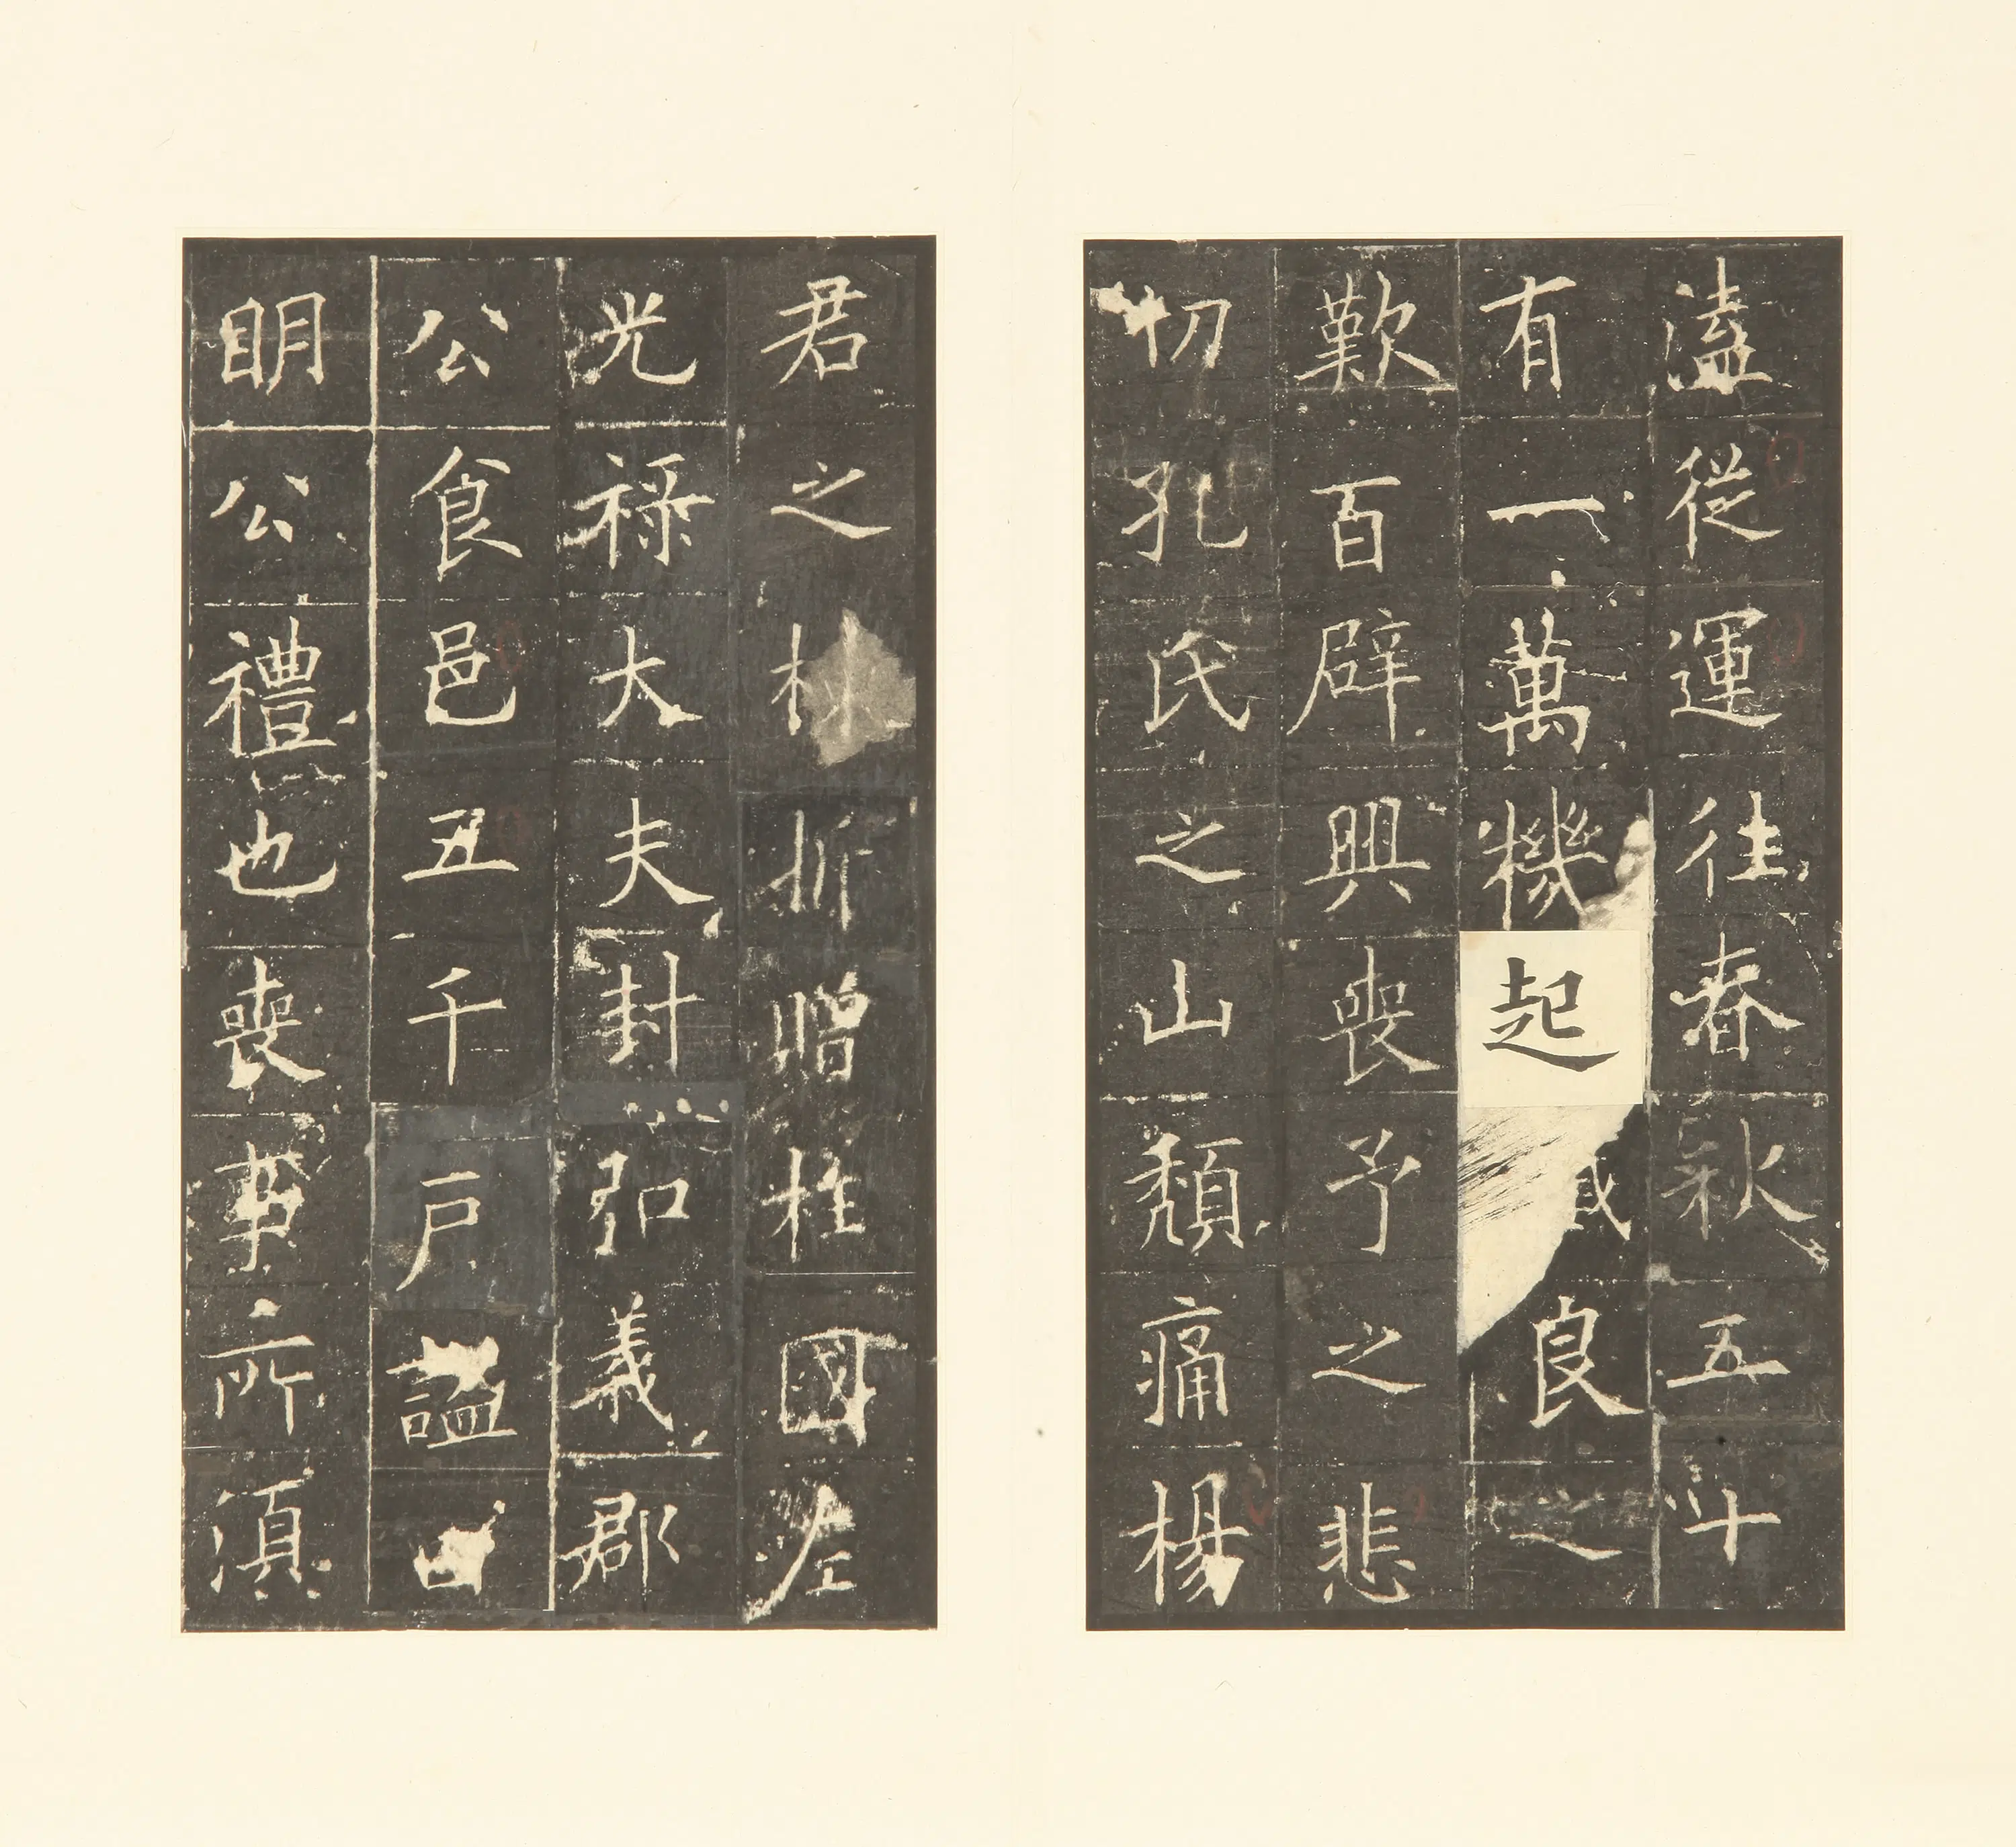 溘從運往春秋五十
有一萬機起良之
歎百辟興喪予之悲
切孔氏之山頹痛楊
君之折贈柱國左
光祿大夫封弘義郡
公食邑五千戶謚曰
明公禮也喪事所須